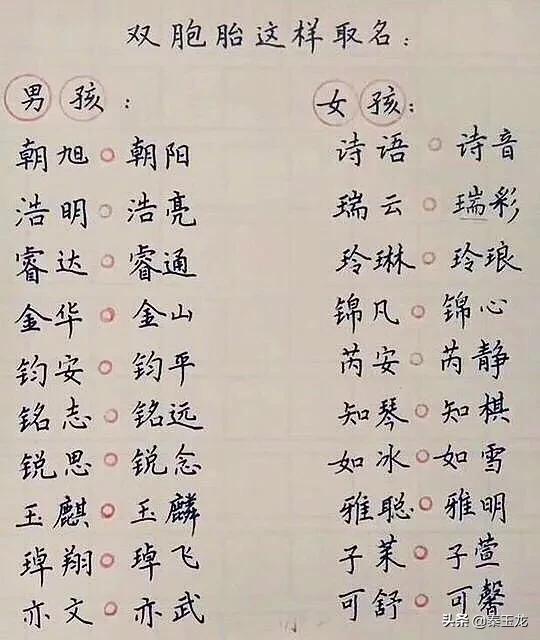 双胞胎这样取名：
男孩： 女孩：
朝旭。朝阳 诗语。诗音
浩明。浩亮 瑞云。瑞彩
睿达。睿通 玲琳。玲琅
金华。金山 锦凡。锦心
钧安。钧平 芮安。芮静
铭志。铭远 知琴。知棋
锐思。锐念 如冰。如雪
玉麒。玉麟 雅聪。雅明
琸翔。琸飞 子茉。子萱
亦文。亦武 可舒。可馨
头条 @秦玉龙